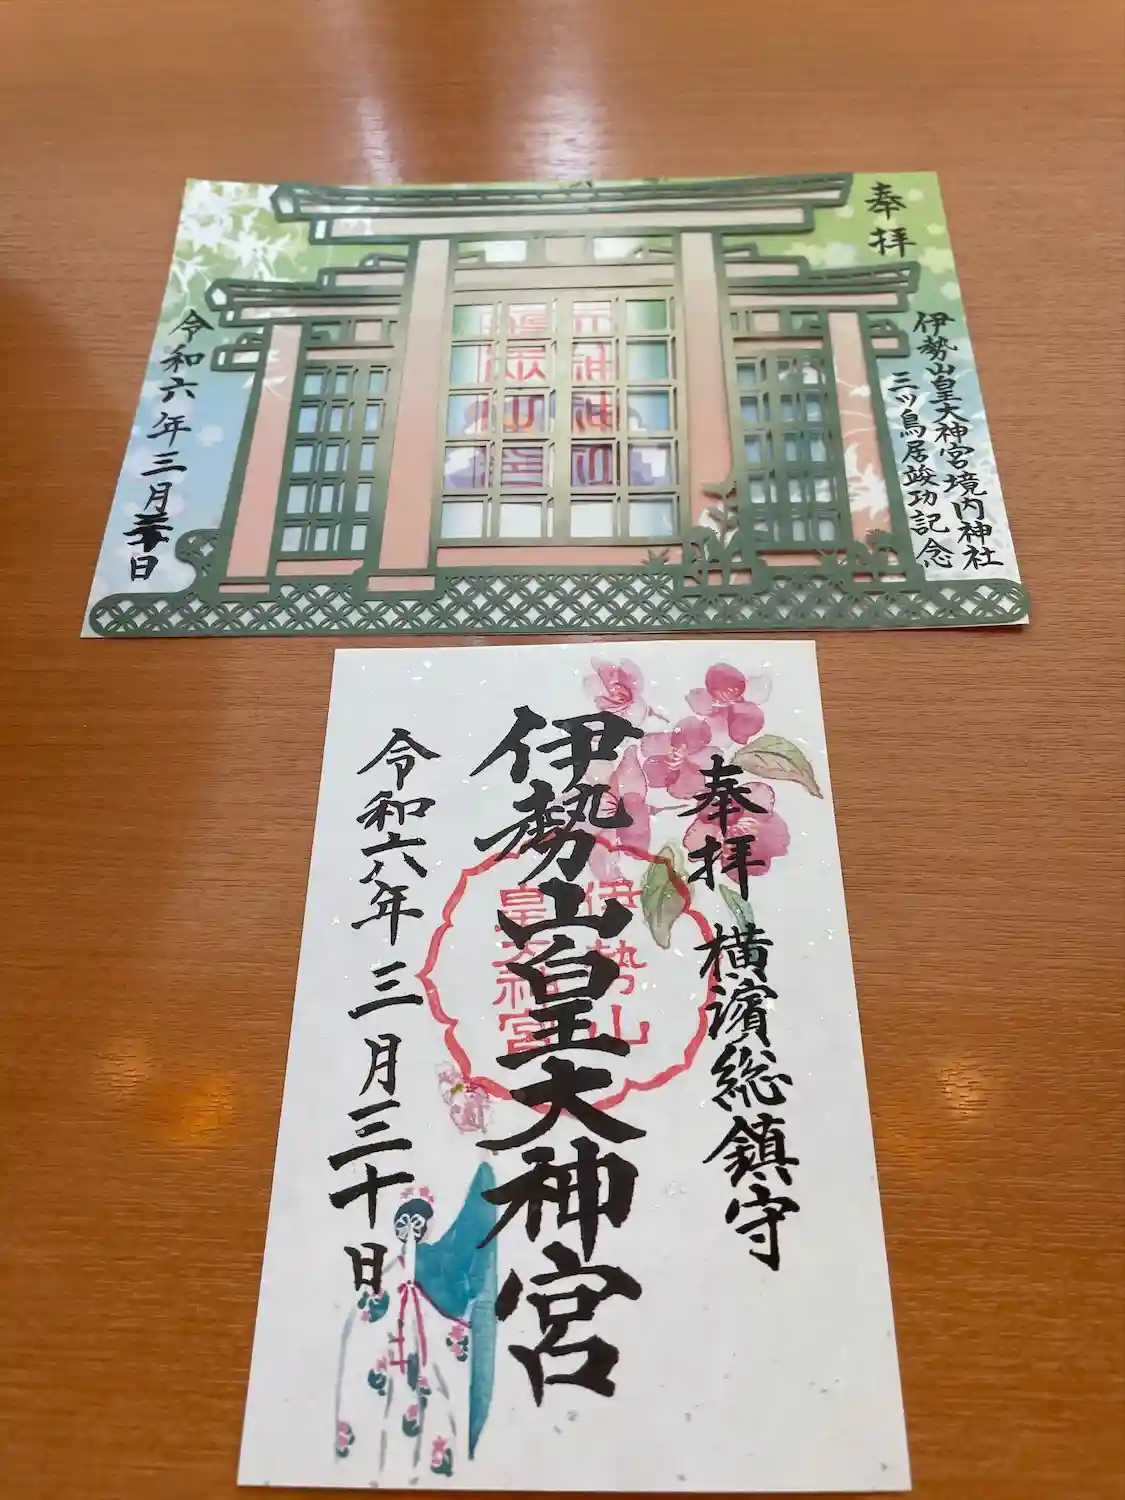 奉拝
伊勢山皇大神宮境内神社
三ツ鳥居竣功記念
令和六年三月三十日
奉拝
横濱総鎮守
伊勢山皇大神宮
伊勢山
皇大神宮
令和六年三月三十日